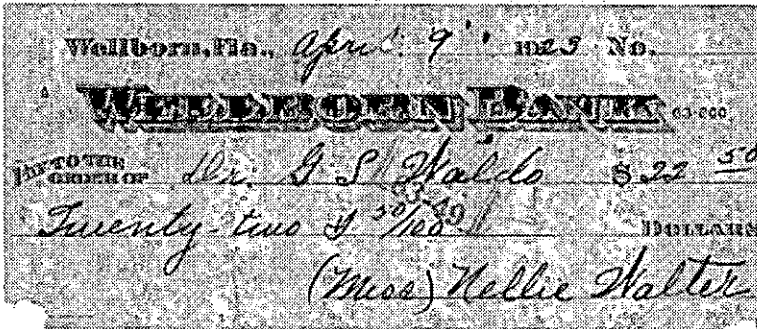 Wellborn, Fla., April 9 1923 No.
WELLBORN BANK 63-600
PAY TO THE ORDER OF Dr. G. S. Waldo $ 22 50
Twenty-two & 50/100 DOLLARS
(Miss) Nellie Walter